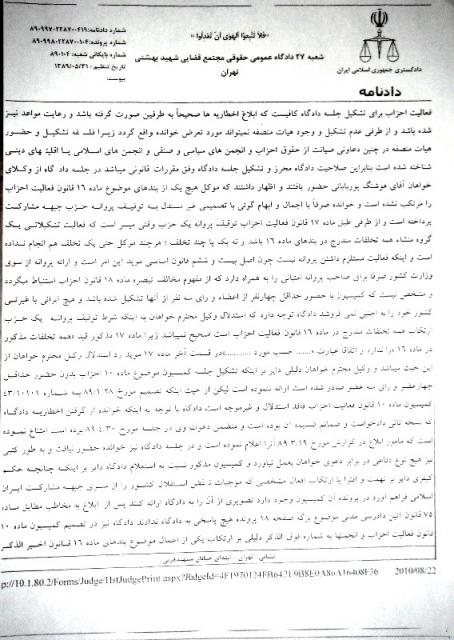 «فلا تتبعوا الهوی ان تعدلوا»
شماره دادنامه: ۸۹۰۹۹۷۰۲۲۸۷۰۰۴۱۹
شماره پرونده: ۸۹۰۹۹۸۰۲۲۸۷۰۰۱۰۴
شماره بایگانی شعبه: ۸۹۰۱۰۴
تاریخ تنظیم: ۱۳۸۹/۰۵/۳۱
پیوست:
شعبه ۲۷ دادگاه عمومی حقوقی مجتمع قضایی شهید بهشتی
تهران
دادگستری جمهوری اسلامی ایران
دادنامه
فعالیت احزاب برای تشکیل جلسه دادگاه کافیست که ابلاغ اخطاریه ها صحیحاً به طرفین صورت گرفته باشد و رعایت مواعد نیز
شده باشد و از طرفی عدم تشکیل و حضور هیات منصفه نمیتواند مورد تعرض خوانده واقع گردد زیرا فلسفه تشکیل و حضور
هیات منصفه در چنین دعاوی صیانت از حقوق احزاب و انجمن های سیاسی و صنفی و انجمن های اسلامی یا اقلیت های دینی
شناخته شده است بنابراین صلاحیت دادگاه محرز و تشکیل جلسه دادگاه وفق مقررات قانونی میباشد در جلسه دادگاه از وکلای
خواهان آقای هوشنگ پوربابائی حضور یافتند و اظهار داشتند که موکل هیچ یک از بندهای موضوع ماده ۱۶ قانون فعالیت احزاب
را مرتکب نشده است و خوانده صرفاً با اجمال و ابهام گوئی با تصمیمی غیر مستدل به توقیف پروانه حزب جبهه مشارکت
پرداخته است و از طرفی طبق ماده ۱۷ قانون فعالیت احزاب توقیف پروانه یک حزب وقتی میسر است که فعالیت تشکیلاتی یک
گروه منشاء همه تخلفات مندرج در بندهای ماده ۱۶ باشد و نه یک یا چند تخلف؛ هر چند موکل حتی یک تخلف هم انجام نداده
است و اینکه فعالیت مستلزم داشتن پروانه نیست چون اصل بیست و ششم قانون اساسی موید این امر است و ارائه پروانه از سوی
وزارت کشور صرفا برای صاحب پروانه امتیاتی را به همراه دارد که از مفهوم مخالف تبصره ماده ۱۸ قانون احزاب استنباط میگردد
و مشخص نیست که کمیسیون با حضور حداقل چهارنفر از اعضاء و رای سه نفر از آنها تشکیل شده باشد و هیچ ایرانی با غیرتی
کشور خود را به اجنبی نمی فروشد دادگاه توجه دارد که استدلال وکیل محترم خواهان به اینکه شرط توقیف پروانه یک حزب
ارتکاب همه تخلفات مندرج در ماده ۱۶ قانون فعالیت احزاب است صحیح نمیباشد زیرا ماده ۱۷ مذکور قید «همه تخلفات مذکور
در ماده ۱۶» را ندارد و اتفاقا عبارت «...... حسب مورد ............» در قسمت آخر ماده ۱۷ موید رد استدلال وکیل محترم خواهان از
این حیث میباشد و وکیل محترم خواهان دلیلی دایر بر اینکه تشکیل جلسه کمیسیون موضوع ماده ۱۰ احزاب بدون حضور حداقل
چهارعضو و رای سه عضو صادر شده است ارائه ننموده است لیکن از حیث اینکه تصمیم مورخ ۸۹/۱/۲۸ به شماره ۴۳/۱۰۱۰۱
کمیسیون ماده ۱۰ قانون فعالیت احزاب فاقد استدلال و غیرموجه است دادگاه با توجه به اینکه خوانده از گرفتن اخطاریه دادگاه
که نسخه ثانی دادخواست و ضمائم ضمیمه آن بوده است و متضمن دعوت وی در جلسه مورخ ۸۹.۴.۳۰ بوده است امتناع نموده
است که مامور ابلاغ در گزارش مورخ ۸۹.۳.۱۹ آنرا اعلام نموده است و در جلسه دادگاه نیز خوانده حضور نیافت و به طور کتبی
نیز هیچ نوع دفاعی در برابر دعوی خواهان بعمل نیاورد و کمیسیون مذکور نسبت به استعلام دادگاه دایر بر اینکه چنانچه حکم
کیفری دایر بر تهمت و افترا یا ارتکاب افعال مشخصی که موجبات نقض استقلال کشور را از سوی جبهه مشارکت ایران
اسلامی فراهم آورد در پرونده آن کمیسیون وجود دارد تصویری از آن را به دادگاه ارائه کنند پس از ابلاغ به مخاطب مطابق ماده
۷۵ قانون آئین دادرسی مدنی موضوع برگه صفحه ۱۸ پرونده هیچ پاسخی به دادگاه ندادند دادگاه نیز در تصمیم کمیسیون ماده ۱۰
قانون فعالیت احزاب و انجمنها به شماره فوق الذکر دلیلی بر ارتکاب یکی از اعمال موضوع بندهای ماده ۱۶ قانون اخیر الذکر
نشانی: تهران - ابتدای خیابان
2010/08/22